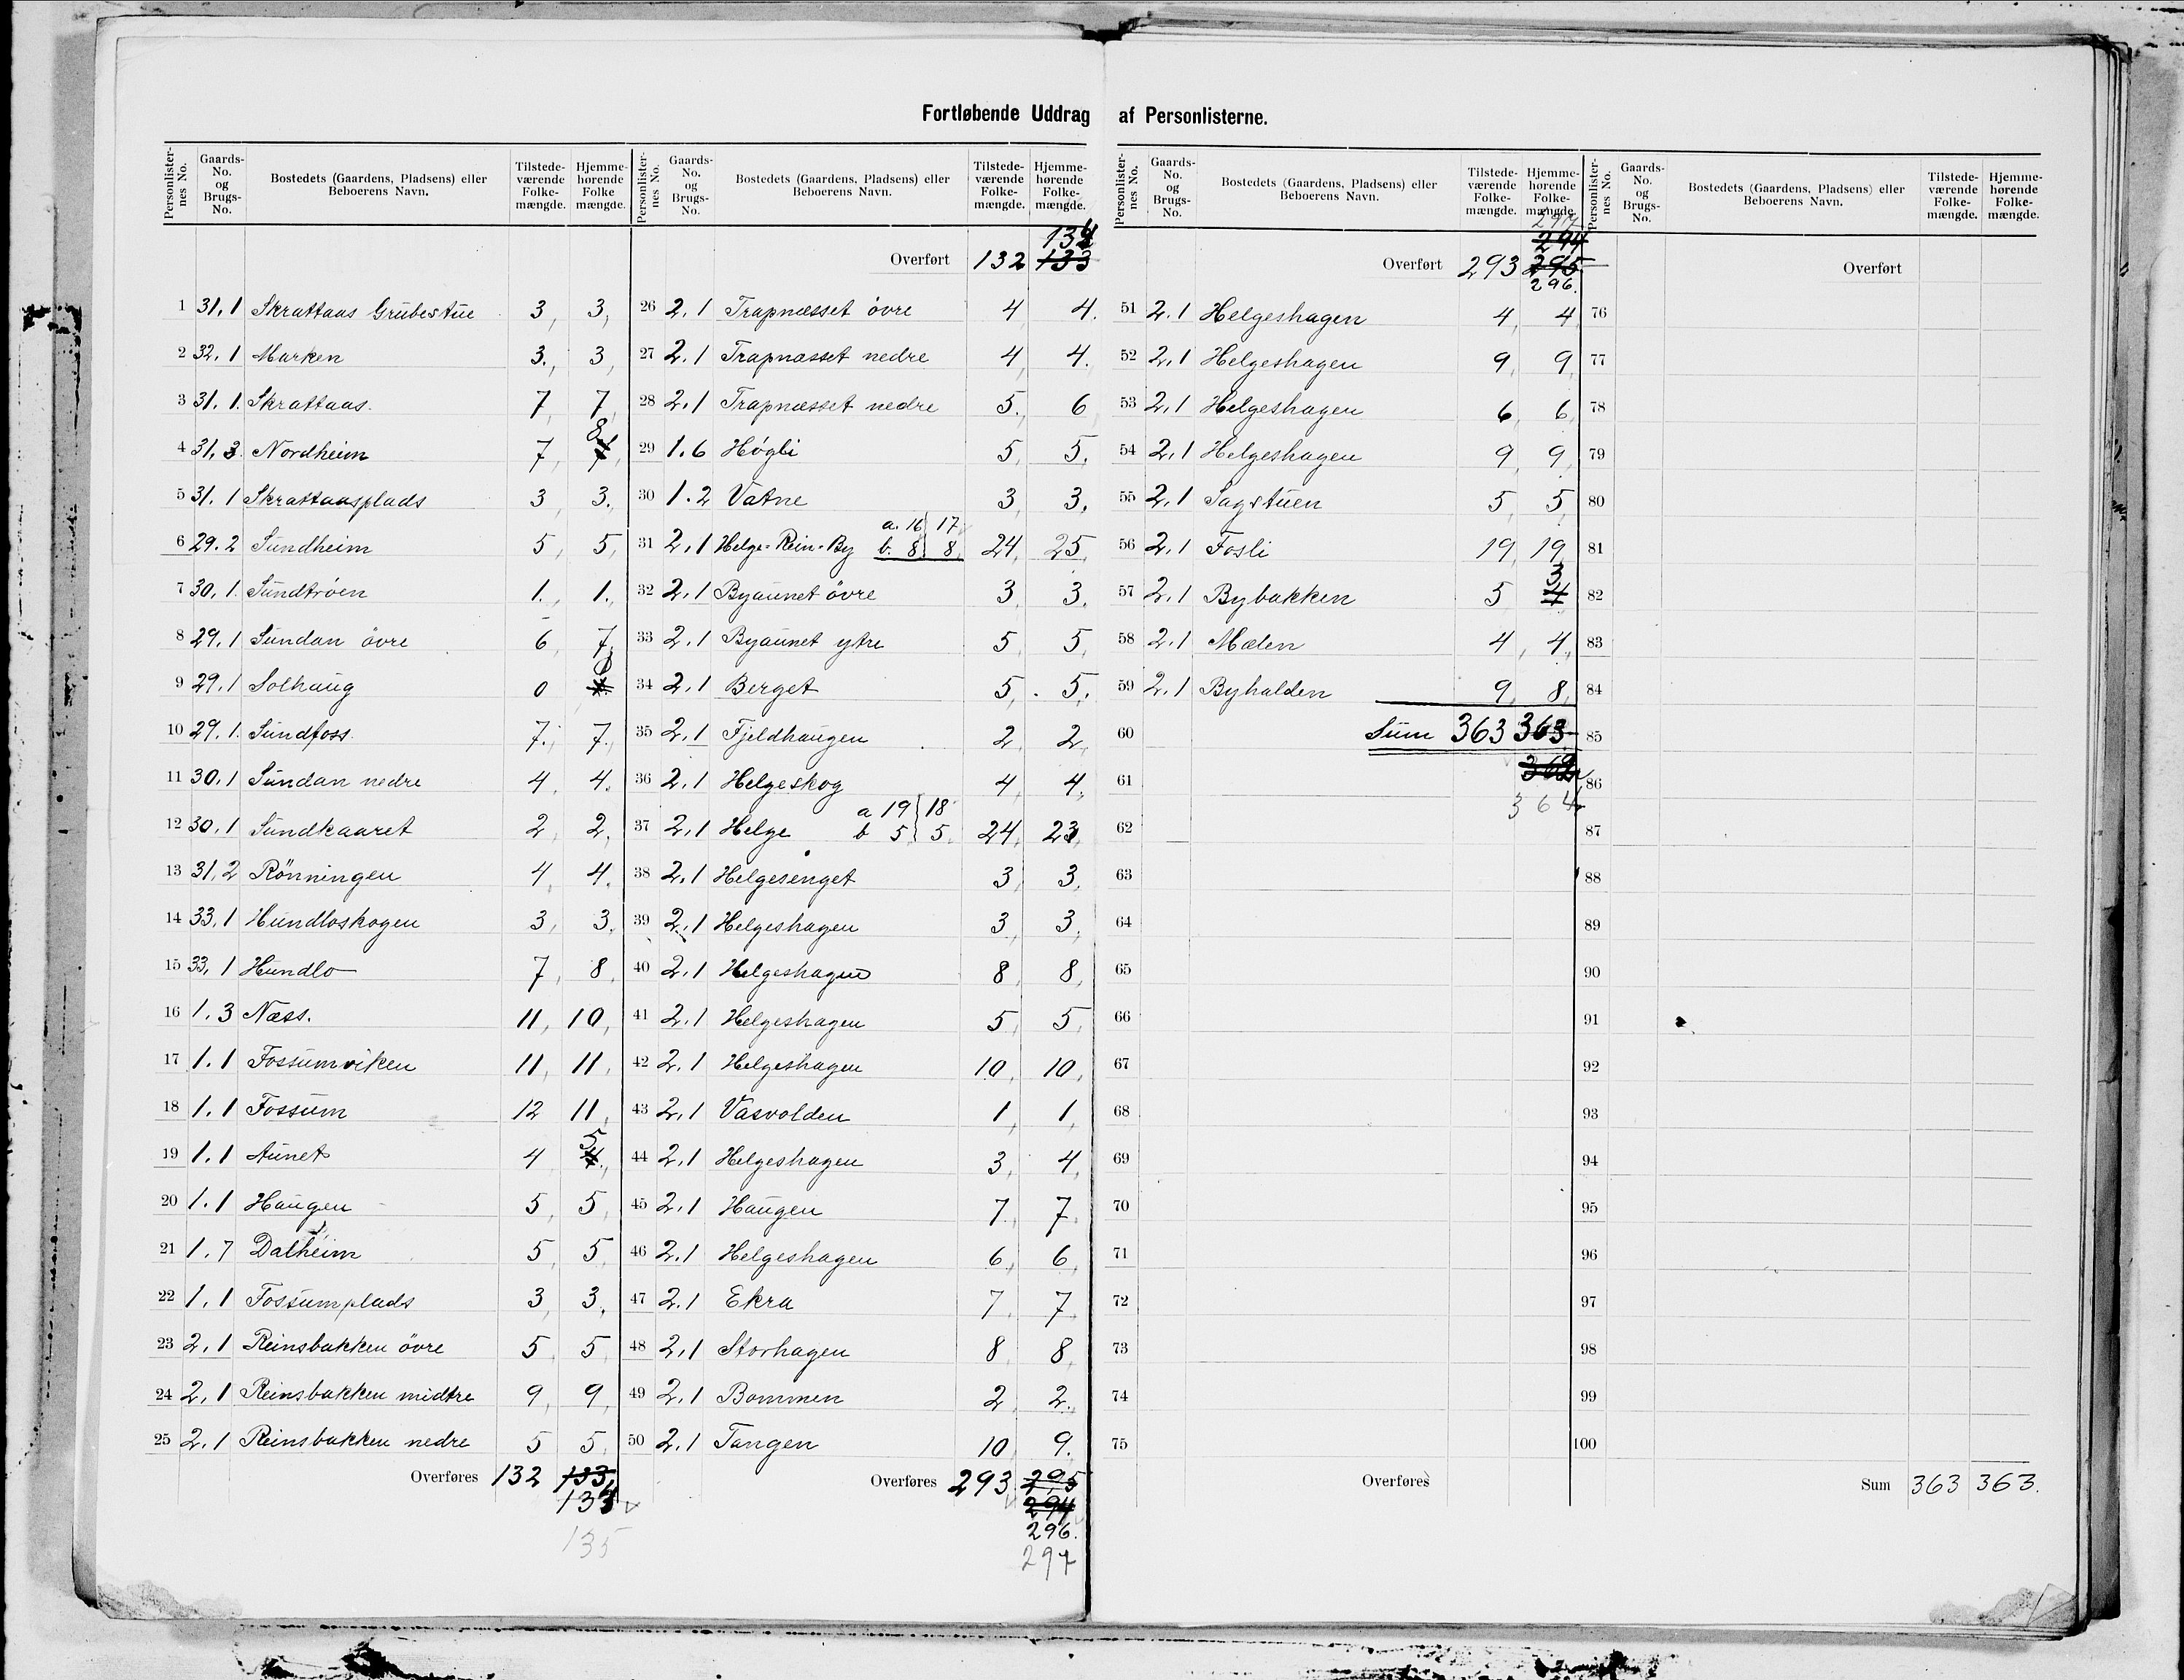 Fortløbende Uddrag af Personlisterne.
Personlisternes No. Gaards-No. og Brugs-No. Bostedets (Gaardens, Pladsens) eller Beboerens Navn. Tilstedeværende Folkemængde. Hjemmehørende Folkemængde.
1 31,1 Skrattaas Grubestue 3, 3,
2 32,1 Marken 3, 3,
3 31,1. Skrattaas. 7, 7,
4 31,3. Nordheim 7, 8
5 31,1 Skrattaasplads 3 3.
6 29.2 Sundheim 5, 5,
7 30,1. Sundtröen 1., 1.,
8 29,1 Sundan övre 6, 7,
9 29,1 Solhaug 0 0
10 29,1. Sundfoss. 7., 7.,
11 30,1 Sundan nedre 4, 4.
12 30,1 Sundkaaret 2, 2,
13 31,2 Rönningen 4, 4.
14 33,1 Hundloskogen 3, 3,
15 33,1 Hundlo 7, 8,
16 1.3 Næss. 11, 10,
17 1.1 Fossumviken 11, 11,
18 1.1 Fossum 12 11,
19 1.1 Aunet 4 5
20 1.1 Haugen 5, 5,
21 1.7 Dalheim 5, 5,
22 1.1 Fossumplads 3, 3,
23 2,1 Reinsbakken övre 5, 5,
24 2,1 Reinsbakken midtre 9, 9,
25 2,1 Reinsbakken nedre 5 5,
Overføres 132 133,
135
Personlisternes No. Gaards-No. og Brugs-No. Bostedets (Gaardens, Pladsens) eller Beboerens Navn. Tilstedeværende Folkemængde. Hjemmehørende Folkemængde.
Overført 132 133
26 2,1 Trapnæsset övre 4 4.
27 2.1 Trapnæsset nedre 4 4.
28 2.1 Trapnæsset nedre 5. 6
29 1.6 Högli 5, 5.
30 1.2 Vatne 3 3.
a. 16 17
31 2,1 Helge-Rein-By b. 8 8, 24, 25,
32 2,1 Byaunet övre 3, 3.
33 2,1 Byaunet ytre 5, 5,
34 2,1 Berget 5, 5.
35 2,1 Fjeldhaugen 2 2,
36 2,1 Helgeskog 4, 4,
a 19 18
37 2,1 Helge b 5 5. 24, 23,
38 2.1 Helgesenget 3, 3,
39 2.1 Helgeshagen 3, 3,
40 2,1 Helgeshagen 8, 8,
41 2.1 Helgeshagen 5, 5,
42 2,1 Helgeshagen 10, 10,
43 2,1 Vasvolden 1, 1,
44 2,1 Helgeshagen 3, 4,
45 2.1 Haugen 7, 7.
46 2.1 Helgeshagen 6, 6,
47 2.1 Ekra 7, 7
48 2,1 Storhagen 8, 8,
49 2,1 Bommen 2, 2.
50 2.1 Tangen 10, 9.
Overføres 293 295
294
296.
297
Personlisternes No. Gaards-No. og Brugs-No. Bostedets (Gaardens, Pladsens) eller Beboerens Navn. Tilstedeværende Folkemængde. Hjemmehørende Folkemængde.
297
294
Overført 293 295
296.
51 2.1 Helgeshagen 4, 4,
52 2,1 Helgeshagen 9, 9,
53 2,1 Helgeshagen 6, 6,
54 2,1 Helgeshagen 9, 9,
55 2,1 Sagstuen 5, 5,
56 2,1 Fosli 19, 19,
57 2,1 Bybakken 5 3
58 2.1 Mælen 4, 4,
59 2.1 Byhalden 9, 8,
60 Sum 363 363
61
364
62
63
64
65
66
67
68
69
70
71
72
73
74
75
Overføres
Personlisternes No. Gaards-No. og Brugs-No. Bostedets (Gaardens, Pladsens) eller Beboerens Navn. Tilstedeværende Folkemængde. Hjemmehørende Folkemængde.
Overført
76
77
78
79
80
81
82
83
84
85
86
87
88
89
90
91
92
93
94
95
96
97
98
99
100
Sum 363 363.